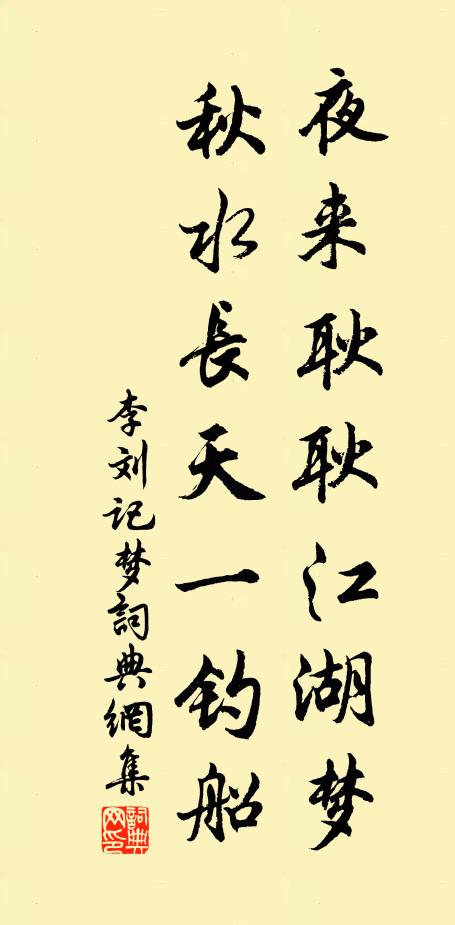 夜来耿耿江湖梦
秋水長天一钓船
李刘记梦詞典網集
詞典网印